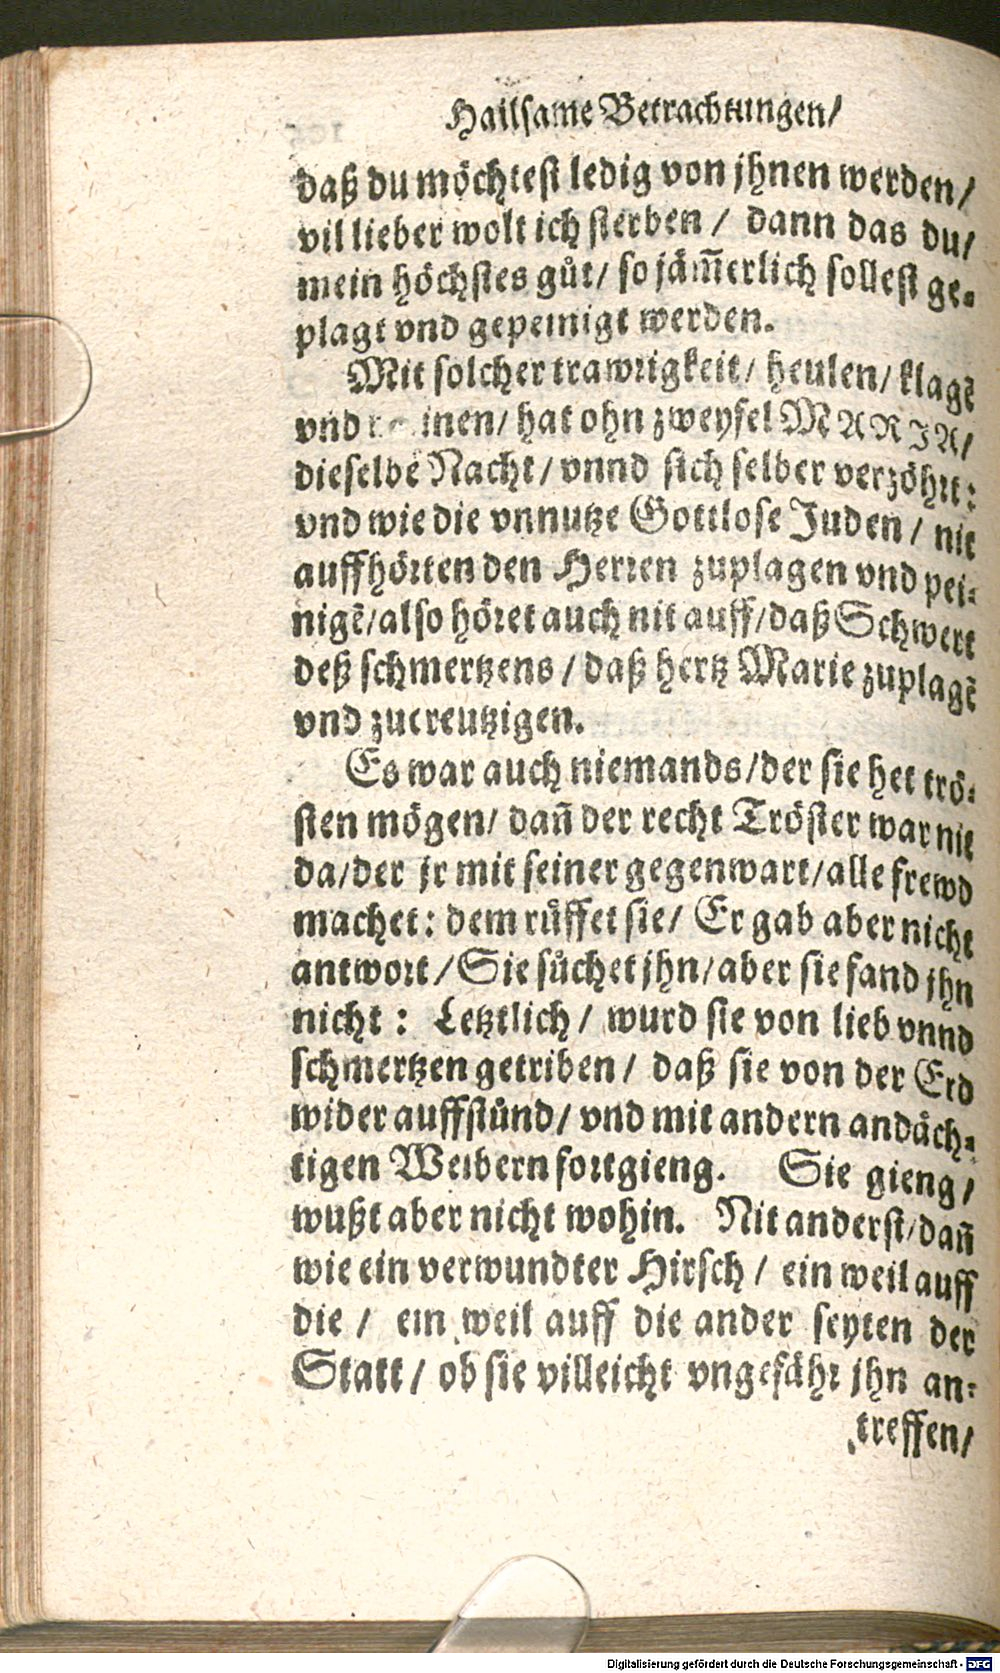 Hailsame Betrachtungen/
daß du möchtest ledig von jhnen werden/
vil lieber wolt ich sterben / dann das du/
mein höchstes gůt/ so jäm̃erlich sollest ge-
plagt vnd gepeinigt werden.
Mit solcher trawrigkeit/ heulen/ klagẽ
vnd / hat ohn zweyfel MARIA/
dieselbe Nacht/ vnnd sich selber verzöhrt:
vnd wie die vnnutze Gottlose Juden / nit
auffhörten den Herren zuplagen vnd pei-
nigẽ/also höret auch nit auff/daß Schwert
deß schmertzens / daß hertz Marie zuplagẽ
vnd zucreutzigen.
Es war auch niemands/der sie het trö-
sten mögen/ dañ der recht Tröster war nit
da/der jr mit seiner gegenwart/alle frewd
machet: dem růffet sie/ Er gab aber nicht
antwort/Sie sůchet jhn/aber sie fand jhn
nicht : Letztlich/ wurd sie von lieb vnnd
schmertzen getriben/ daß sie von der Erd
wider auffstůnd/ vnd mit andern andäch-
tigen Weibern fortgieng. Sie gieng/
wußt aber nicht wohin. Nit anderst/dañ
wie ein verwundter Hirsch/ ein weil auff
die / ein weil auff die ander seyten der
Statt/ ob sie villeicht vngefähr jhn an-
treffen/
Digitalisierung gefördert durch die Deutsche Forschungsgemeinschaft - DFG